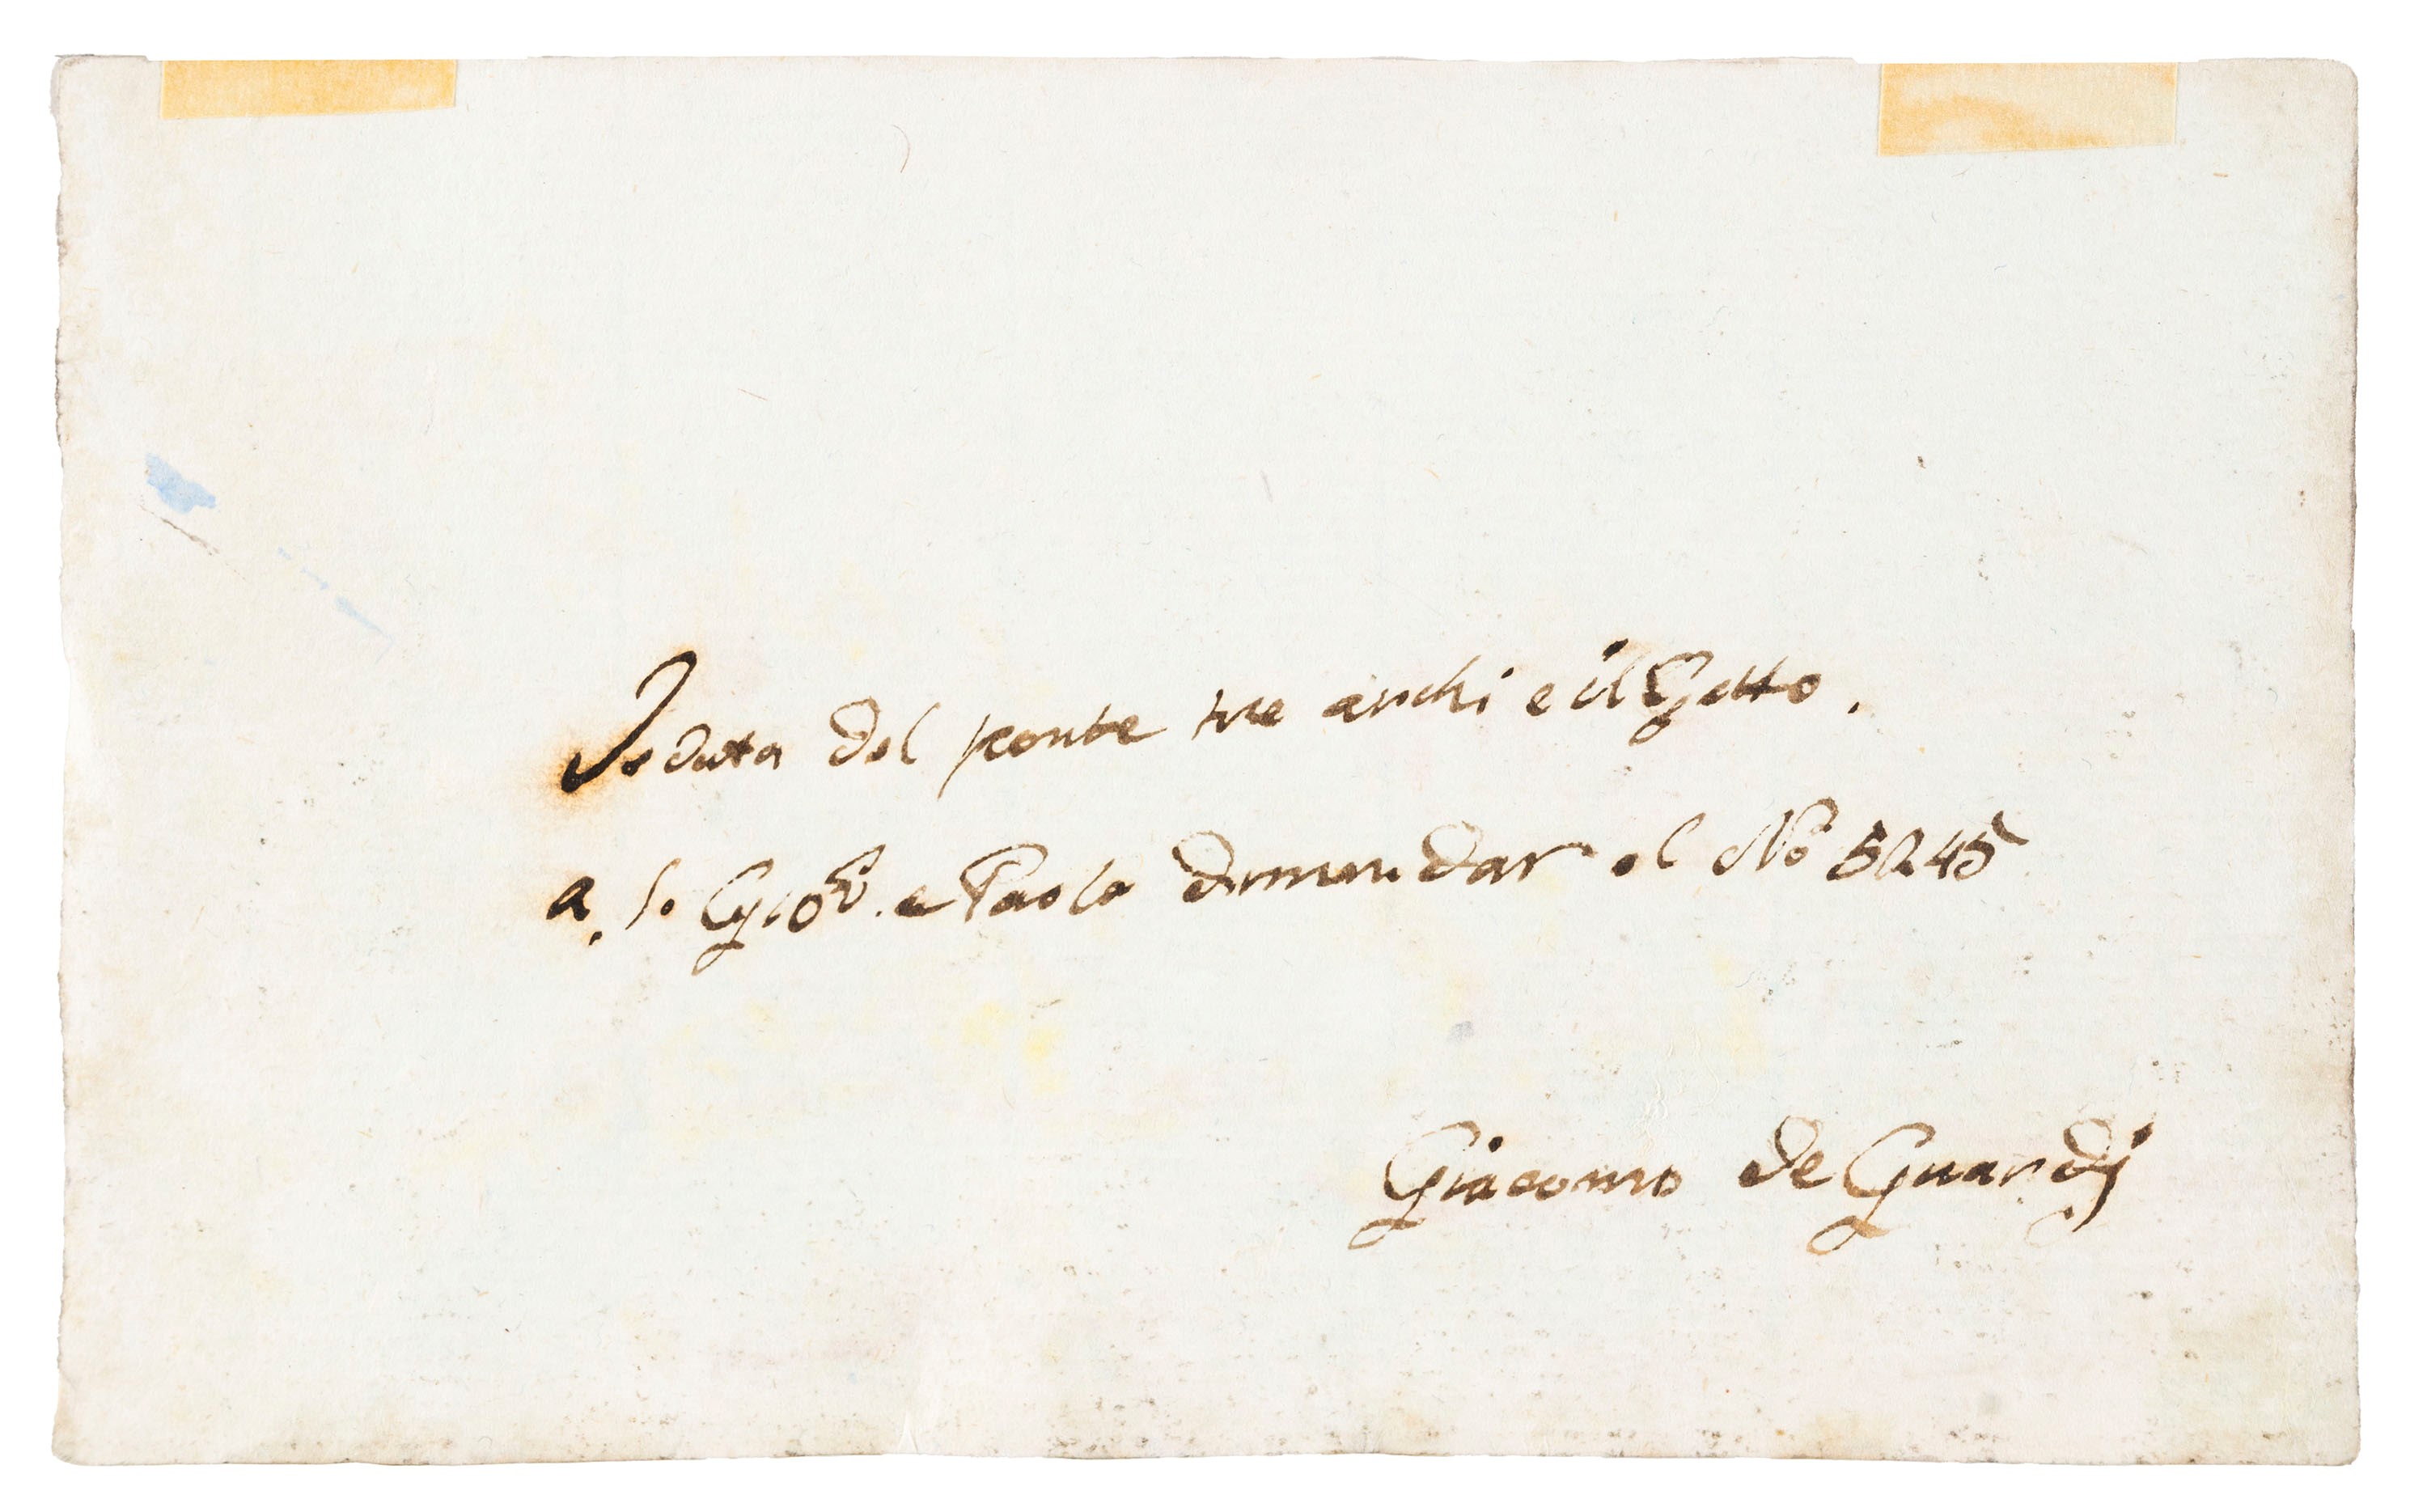 Veduta del ponte tre archi e il Getto.
a. S. Gio: e Paolo dimandar al No 5245
Giacomo de Guardi